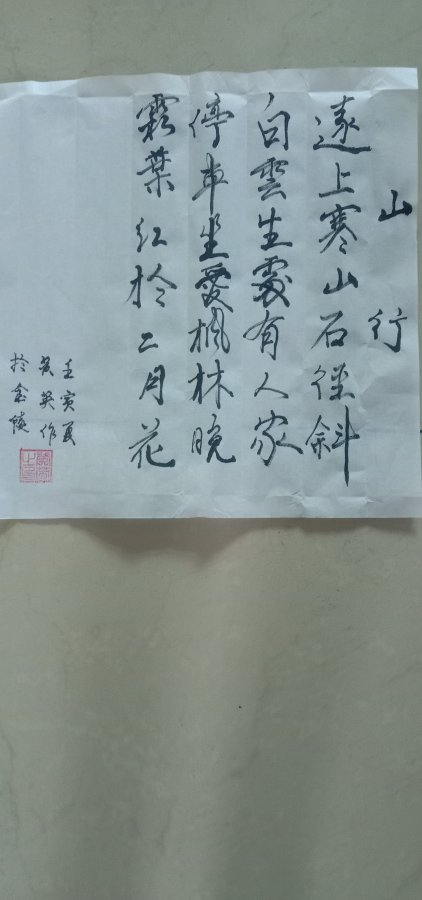 山行
遠上寒山石徑斜
白雲生處有人家
停車坐愛楓林晚
霜葉红於二月花
壬寅夏
英作
於金陵